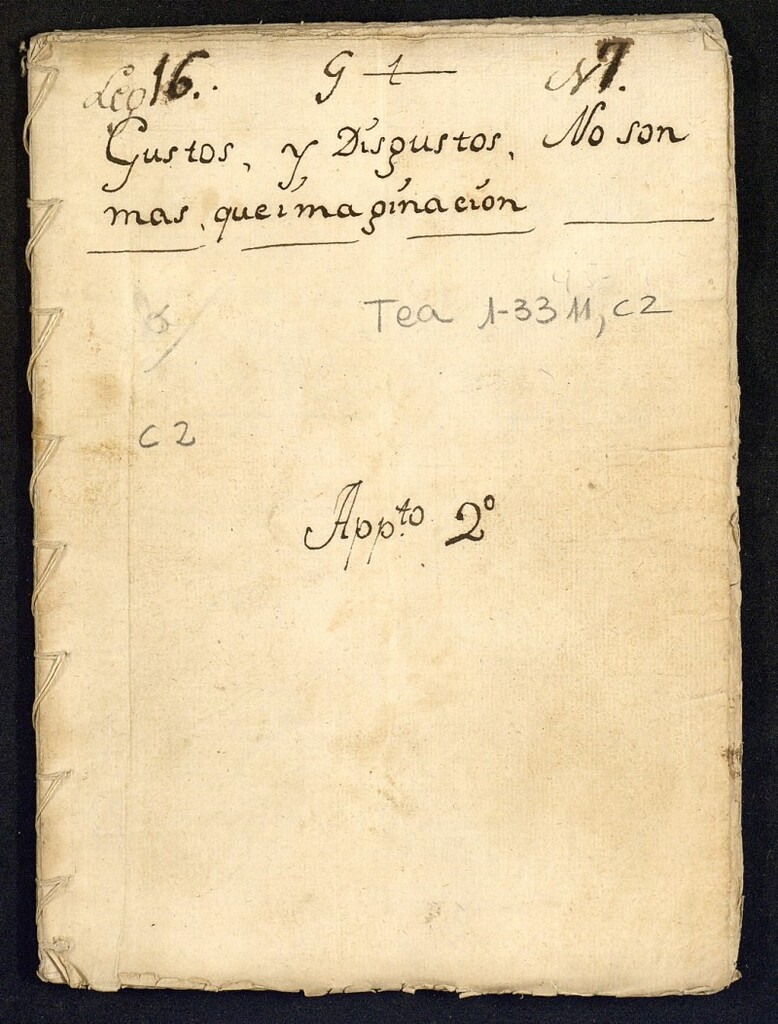 Leg 16.. G + N 7.
Gustos, y Disgustos, No son
mas, que imaginacion
Tea 1-33 11, C2
C 2
App.to 2º